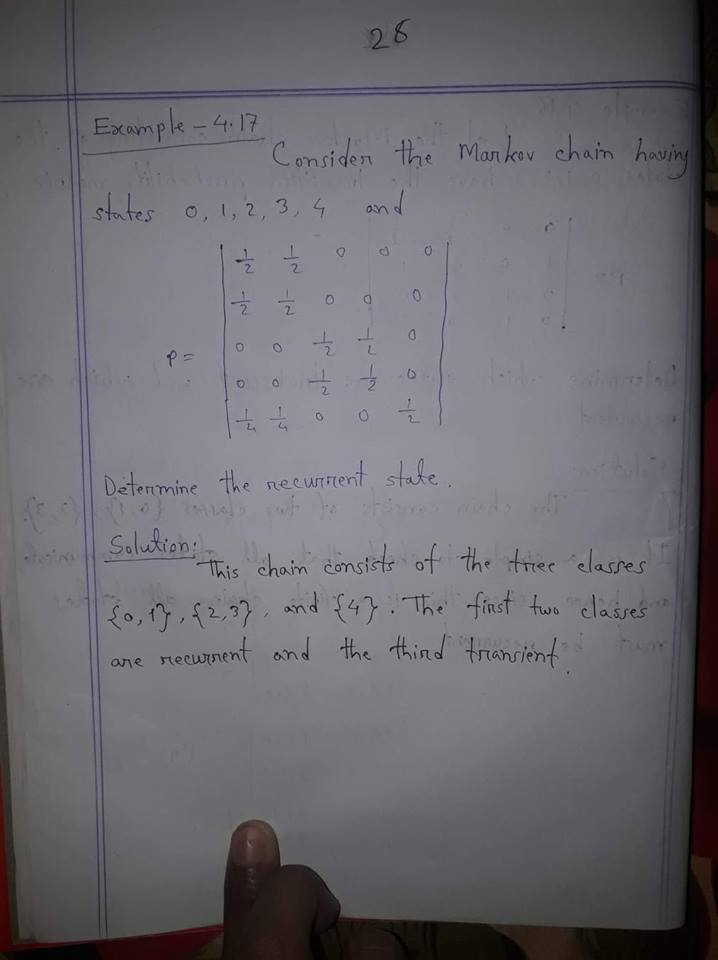 28
Example - 4.17
Consider the Markov chain having
states 0, 1, 2, 3, 4 and
1/2 1/2 0 0 0
1/2 1/2 0 0 0
P = 0 0 1/2 1/2 0
0 0 1/2 1/2 0
1/4 1/4 0 0 1/2
Determine the recurrent state.
Solution:
This chain consists of the tree classes
{0,1}, {2,3}, and {4}. The first two classes
are recurrent and the third transient.